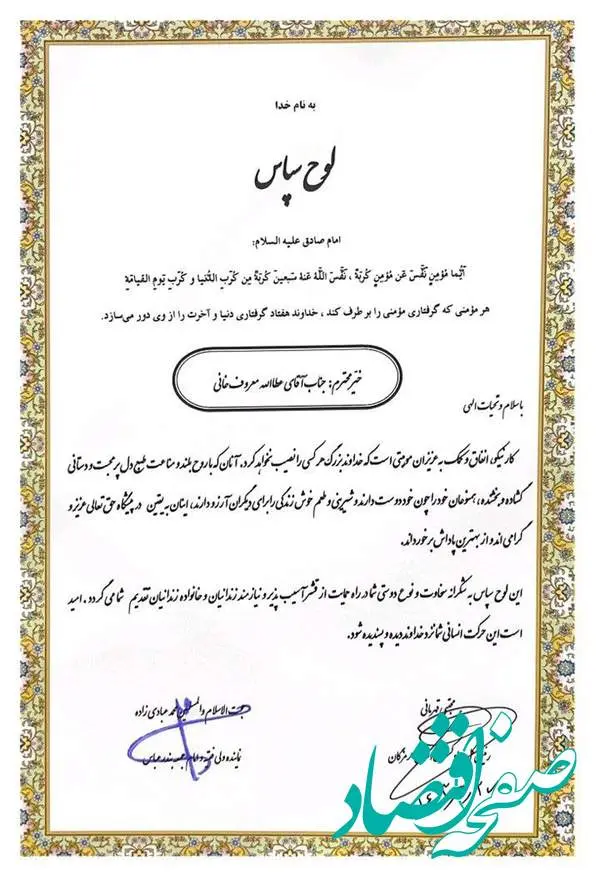 به نام خدا
لوح سپاس
امام صادق علیه السلام:
أیُّما مُؤمِنٍ نَفَّسَ عَن مُؤمِنٍ کُربَةً ، نَفَّسَ اللّهُ عَنهُ سَبعینَ کُربَةً مِن کُرَبِ الدُّنیا و کُرَبِ یَومِ القیامَةِ
هر مؤمنی که گرفتاری مؤمنی را بر طرف کند ، خداوند هفتاد گرفتاری دنیا و آخرت را از وی دور می‌سازد.
خیر محترم: جناب آقای عطاالله معروف خانی
با سلام و تحیات الهی
کار نیکو، انفاق و کمک به عزیزان موهبتی است که خداوند بزرگ هر کسی را نصیب نخواهد کرد. آنان که با روح بلند و مناعت طبع دل پر محبت و دستانی
گشاده و بخشنده، همنوعان خود را چون خود دوست دارند و شیرینی و طعم خوش زندگی را برای دیگران آرزو دارند، اینان به یقین در پیشگاه حق تعالی عزیز و
گرامی اند و از بهترین پاداش برخوردارند.
این لوح سپاس به شکرانه سخاوت و نوع دوستی شما در راه حمایت از قشر آسیب پذیر و نیازمند زندانیان و خانواده زندانیان تقدیم شما می گردد. امید
است این حرکت انسانی شما نزد خداوند دیده و پسندیده شود.
مجتبی قهرمانی
هرمزگان
حجت الاسلام والمسلمین محمد عبادی زاده
نماینده ولی فقیه و امام جمعه بندرعباس
صفحه اقتصاد